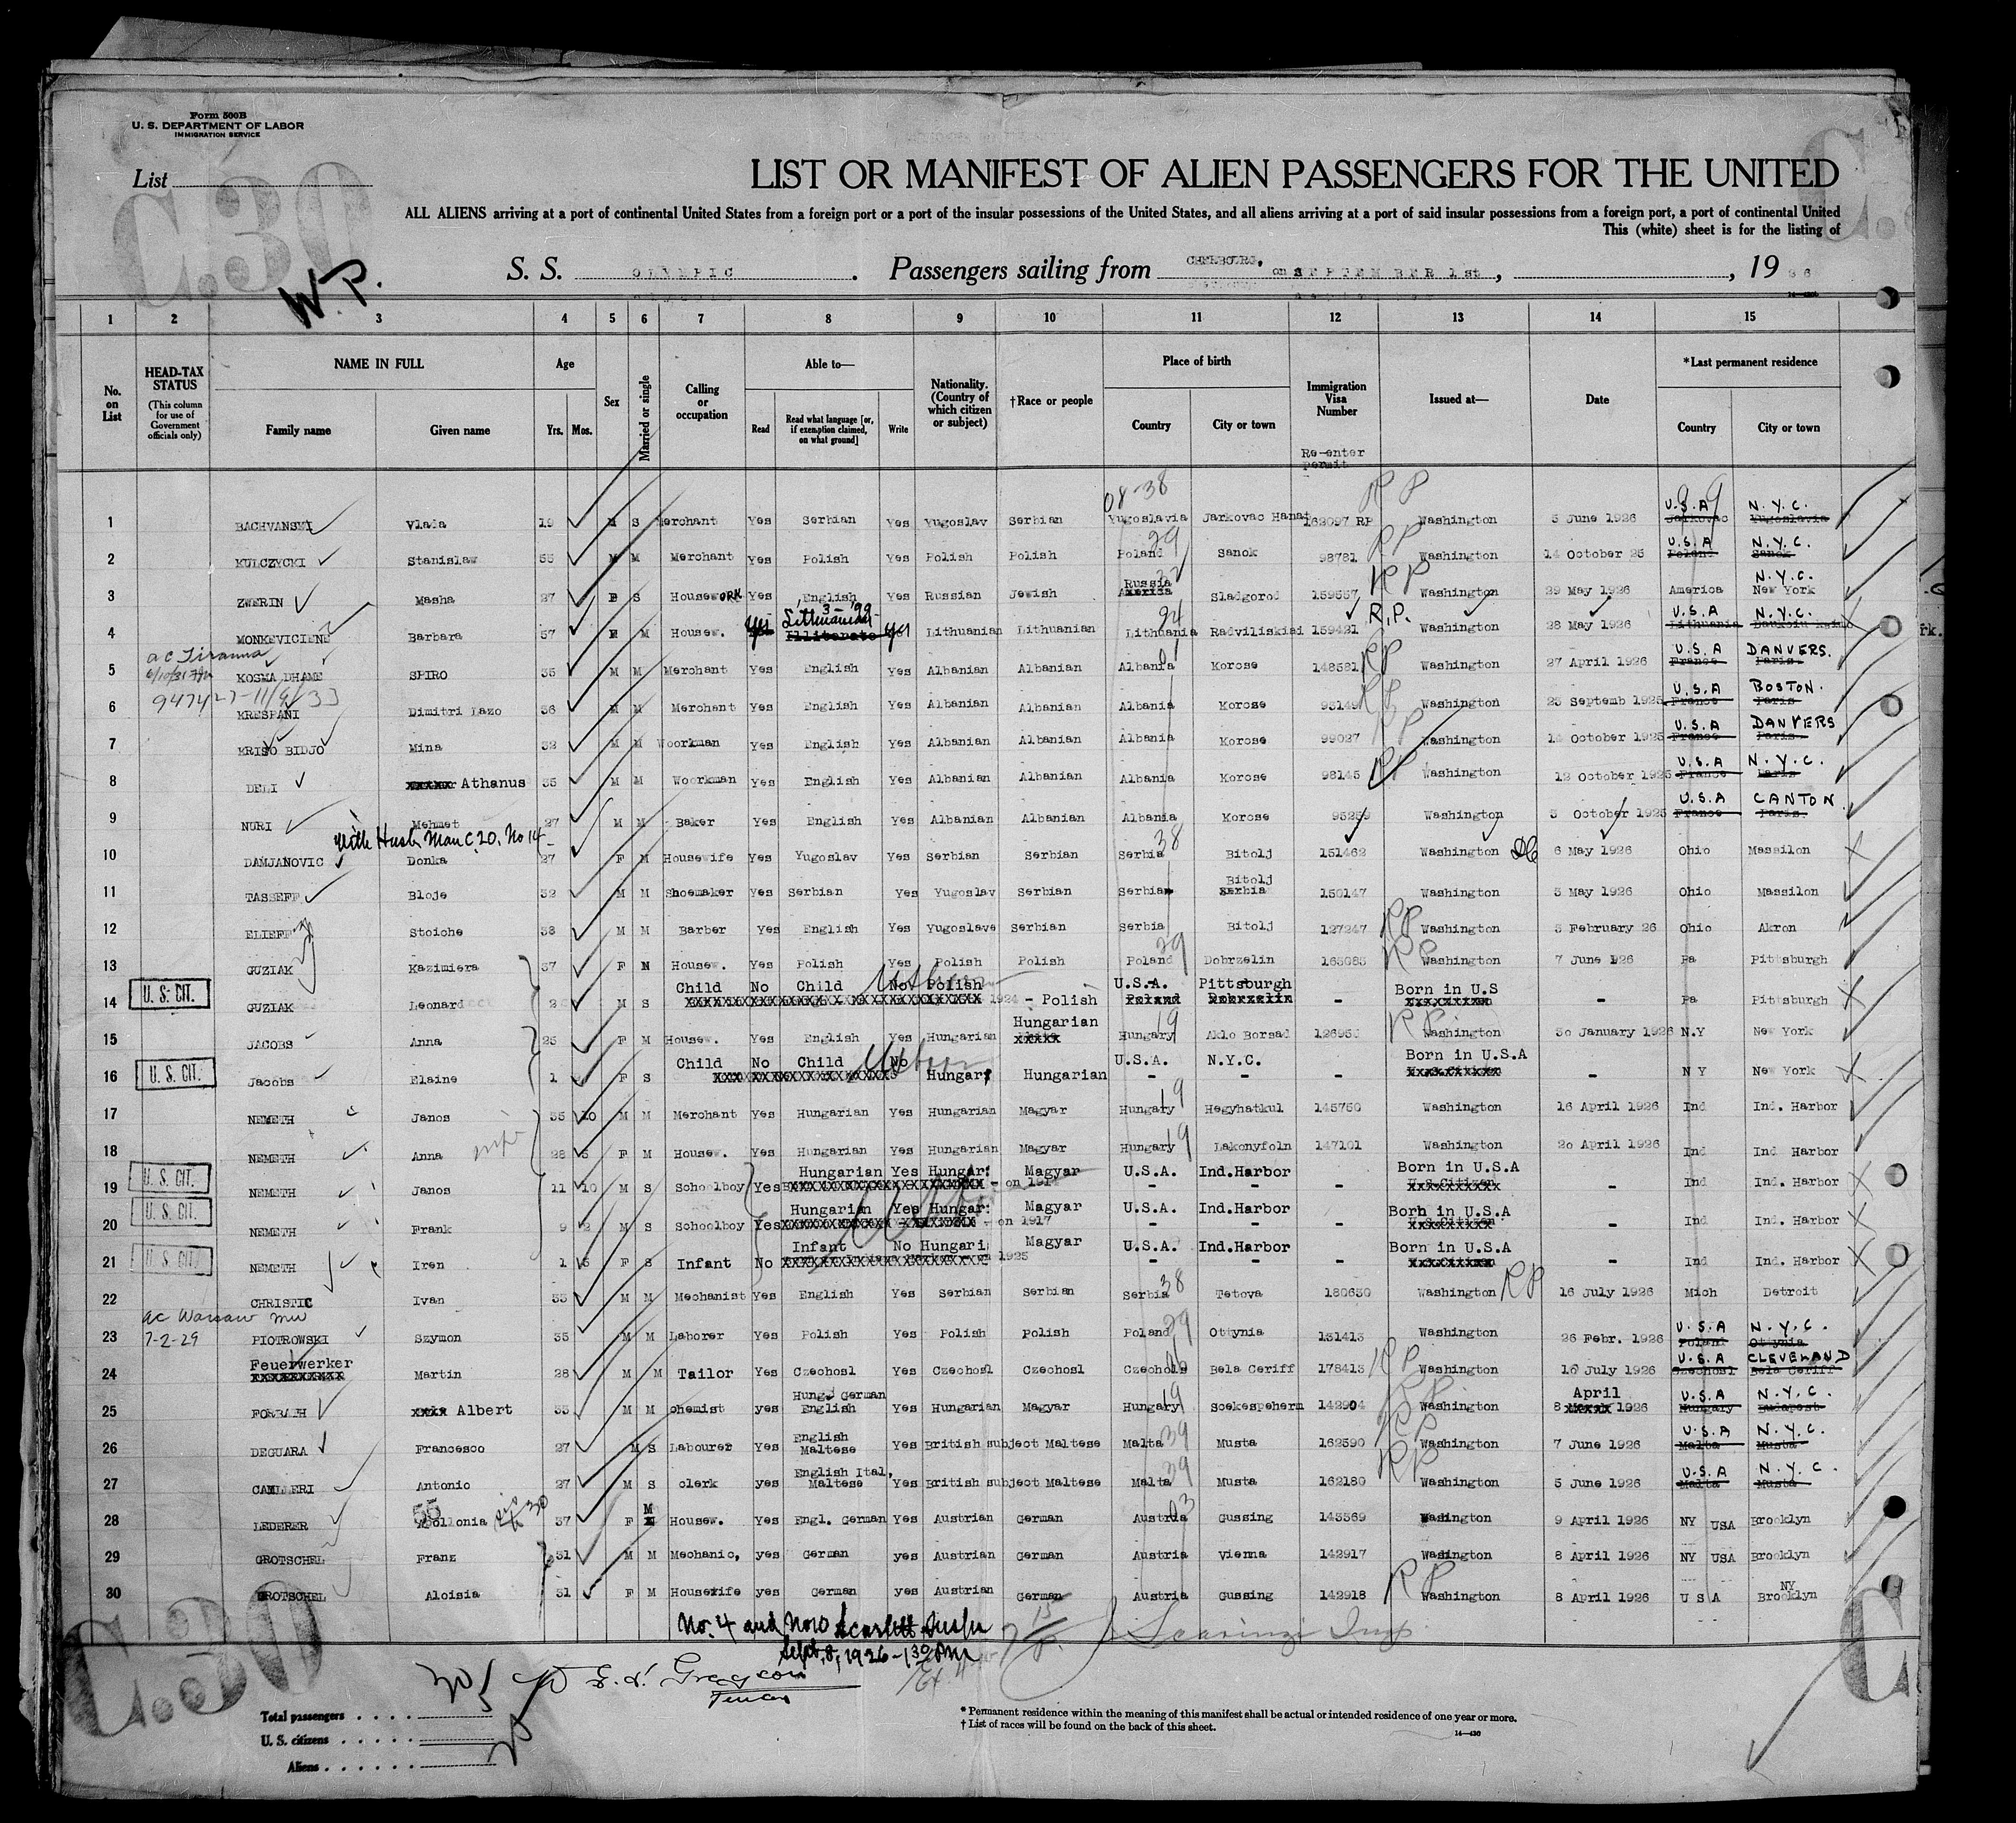 Form 500B
U. S. DEPARTMENT OF LABOR
IMMIGRATION SERVICE
List
C.30
W.P.
LIST OR MANIFEST OF ALIEN PASSENGERS FOR THE UNITED
ALL ALIENS arriving at a port of continental United States from a foreign port or a port of the insular possessions of the United States, and all aliens arriving at a port of said insular possessions from a foreign port, a port of continental United
This (white) sheet is for the listing of
S. S. OLYMPIC. Passengers sailing from CHERBOURG, on SEPTEMBER 1st, , 19 26
1 2 3 4 5 6 7 8 9 10 11 12 13 14 15
No. on List HEAD-TAX STATUS (This column for use of Government officials only) NAME IN FULL Family name Given name Age Yrs. Mos. Sex Married or single Calling or occupation Able to— Read Read what language [or, if exemption claimed, on what ground] Write Nationality. (Country of which citizen or subject) †Race or people Place of birth Country City or town Immigration Visa Number Re-enter permit Issued at— Date *Last permanent residence Country City or town
08-38 RP
1 BACHVANSKI Vlada 19 M S Merchant Yes Serbian Yes Yugoslav Serbian Yugoslavia Jarkovac Hanat 162097 RP Washington 5 June 1926 U.S.A N.Y.C. Jarkovac Yugoslavia
2 KULCZYCKI Stanislaw 55 M M Merchant Yes Polish Yes Polish Polish Poland Sanok 98781 RP Washington 14 October 25 U.S.A N.Y.C. Poland Sanok
3 ZWERIN Masha 27 F S HousewORK Yes English Yes Russian Jewish Russia America Sladgorod 159557 RP Washington 29 May 1926 America N.Y.C. New York
4 MONKEVICIENE Barbara 57 F M Housew. Yes Lithuanian Illiterate yes Lithuanian Lithuanian Lithuania Radviliskiai 159421 R.P. Washington 28 May 1926 U.S.A N.Y.C. Lithuania
ac Tiranna
5 KOSMA DHAME SPIRO 35 M M Merchant Yes English Yes Albanian Albanian Albania Korose 148581 RP Washington 27 April 1926 U.S.A DANVERS. France Paris.
6 KRESPANI Dimitri Lazo 36 M M Merchant Yes English Yes Albanian Albanian Albania Korose 93149 RP Washington 25 Septemb 1925 U.S.A BOSTON. France Paris
7 KRISO BIDJO Mina 32 M M Woorkman yes English Yes Albanian Albanian Albania Korose 99027 RP Washington 14 October 1925 U.S.A DANVERS France Paris.
8 DELI Athanus 35 M M Woorkman yes English Yes Albanian Albanian Albania Korose 98145 RP Washington 12 October 1925 U.S.A N.Y.C. France Paris
9 NURI Mehmet 27 M M Baker Yes English Yes Albanian Albanian Albania Korose 95259 Washington 5 October 1925 U.S.A CANTON. France Paris.
With Husb Man C.20. No 14
10 DAMJANOVIC Donka 27 F M Housewife Yes Yugoslav Yes Serbian Serbian Serbia Bitolj 151462 Washington 6 May 1926 Ohio Massilon
11 TASSEFF Bloje 32 M M Shoemaker Yes Serbian Yes Yugoslav Serbian Serbia Bitolj Serbia 150147 Washington 5 May 1926 Ohio Massilon
12 ELIEFF Stoiche 38 M M Barber Yes English Yes Yugoslave Serbian Serbia Bitolj 127247 RP Washington 5 February 26 Ohio Akron
13 GUZIAK Kazimiera 37 F M Housew. Yes Polish Yes Polish Polish Poland Dobrzelin 163083 RP Washington 7 June 1926 Pa Pittsburgh
14 U. S. CIT. GUZIAK Leonard 2 M S Child No Child No Polish 1924 - Polish U.S.A. Pittsburgh Poland Dobrzelin - Born in U.S - Pa Pittsburgh
15 JACOBS Anna 25 F M Housew. Yes English Yes Hungarian Hungarian Hungary Aklo Borsad 126955 RP Washington 30 January 1926 N.Y New York
16 U. S. CIT. Jacobs Elaine 1 F S Child No Child No Hungary Hungarian U.S.A. N.Y.C. - Born in U.S.A - N Y New York
17 NEMETH Janos 35 10 M M Merchant Yes Hungarian Yes Hungarian Magyar Hungary Hegyhatkul 145750 Washington 16 April 1926 Ind Ind. Harbor
18 NEMETH Anna 28 5 F M Housew. Yes Hungarian Yes Hungarian Magyar Hungary Lakonyfoln 147101 Washington 20 April 1926 Ind Ind. Harbor
19 U. S. CIT. NEMETH Janos 11 10 M S Schoolboy Yes Hungarian Yes Hungar: Magyar U.S.A. Ind.Harbor - Born in U.S.A - Ind Ind. Harbor
20 U. S. CIT. NEMETH Frank 9 2 M S Schoolboy Yes Hungarian Yes Hungar: - on 1917 Magyar U.S.A. Ind.Harbor - Born in U.S.A - Ind Ind. Harbor
21 U. S. CIT. NEMETH Iren 1 5 F S Infant No Infant No Hungari 1925 Magyar U.S.A. Ind.Harbor - Born in U.S.A - Ind Ind. Harbor
22 CHRISTIC Ivan 33 M M Mechanist Yes English Yes Serbian Serbian Serbia Tetova 180630 Washington RP 16 July 1926 Mich Detroit
ac Warsaw
7-2-29
23 PIOTROWSKI Szymon 35 M M Laborer Yes Polish Yes Polish Polish Poland Ottynia 131413 Washington 26 Febr. 1926 U.S.A N.Y.C. Poland Ottynia
24 Feuerwerker Martin 28 M M Tailor Yes Czechosl Yes Czechosl Czechosl Czechosl Bela Ceriff 178413 RP Washington 16 July 1926 U.S.A CLEVELAND Czechosl Bela Ceriff
25 FORBATH Albert 33 M M chemist yes Hung. German English Yes Hungarian Magyar Hungary Scekespeherm 142904 RP Washington 8 April 1926 U.S.A N.Y.C. Hungary Budapest
26 DEGUARA Francesco 27 M S Labourer Yes English Maltese Yes British subject Maltese Malta Musta 162590 RP Washington 7 June 1926 U.S.A N.Y.C. Malta Musta
27 CAMILLERI Antonio 27 M S clerk yes English Ital, Maltese Yes British subject Maltese Malta Musta 162180 RP Washington 5 June 1926 U.S.A N.Y.C. Malta Musta
28 LEDERER Apollonia 37 F M Housew. Yes Engl. German Yes Austrian German Austria Gussing 143369 Washington 9 April 1926 NY USA Brooklyn
29 GROTSCHEL Franz 31 M M Mechanic, yes German yes Austrian German Austria Vienna 142917 Washington 8 April 1926 NY USA Brooklyn
30 GROTSCHEL Aloisia 31 F M Housewife yes German yes Austrian German Austria Gussing 142918 RP Washington 8 April 1926 U S A NY Brooklyn
No. 4 and No 10
Sept. 8, 1926 - 1 30 PM
C.30
Total passengers
U. S. citizens
Aliens
* Permanent residence within the meaning of this manifest shall be actual or intended residence of one year or more.
† List of races will be found on the back of this sheet.